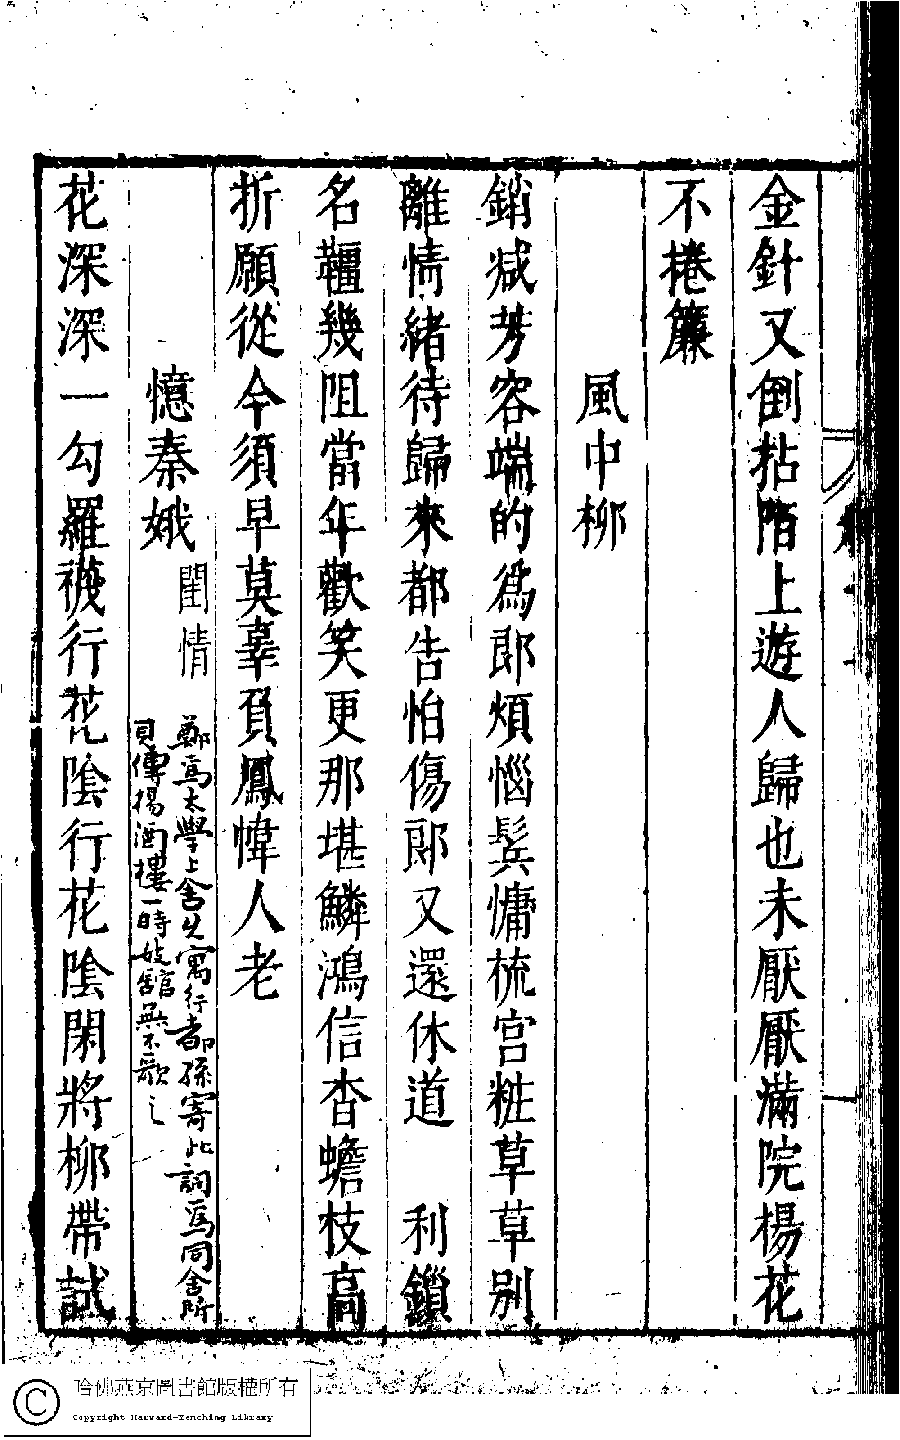 金針又倒拈陌上遊人歸也未厭厭滿院楊花
不捲簾
風中柳
銷减芳容端的爲郎煩惱鬂慵梳宫粧草草别
離情緒待歸來都告怕傷郎又還休道 利鎻
名韁幾阻當年歡笑更那堪鱗鴻信杳蟾枝髙
折願從今須早莫辜負鳳幃人老
憶秦娥 閨情
鄭爲太學上舍久寓行都孫寄此詞爲同舍所
見傳揚酒樓一時妓館無不歌之
花深深一勾羅襪行花陰行花陰閑將柳帶試
哈佛燕京圖書館版權所有
Copyright Harvard-Yenching Library